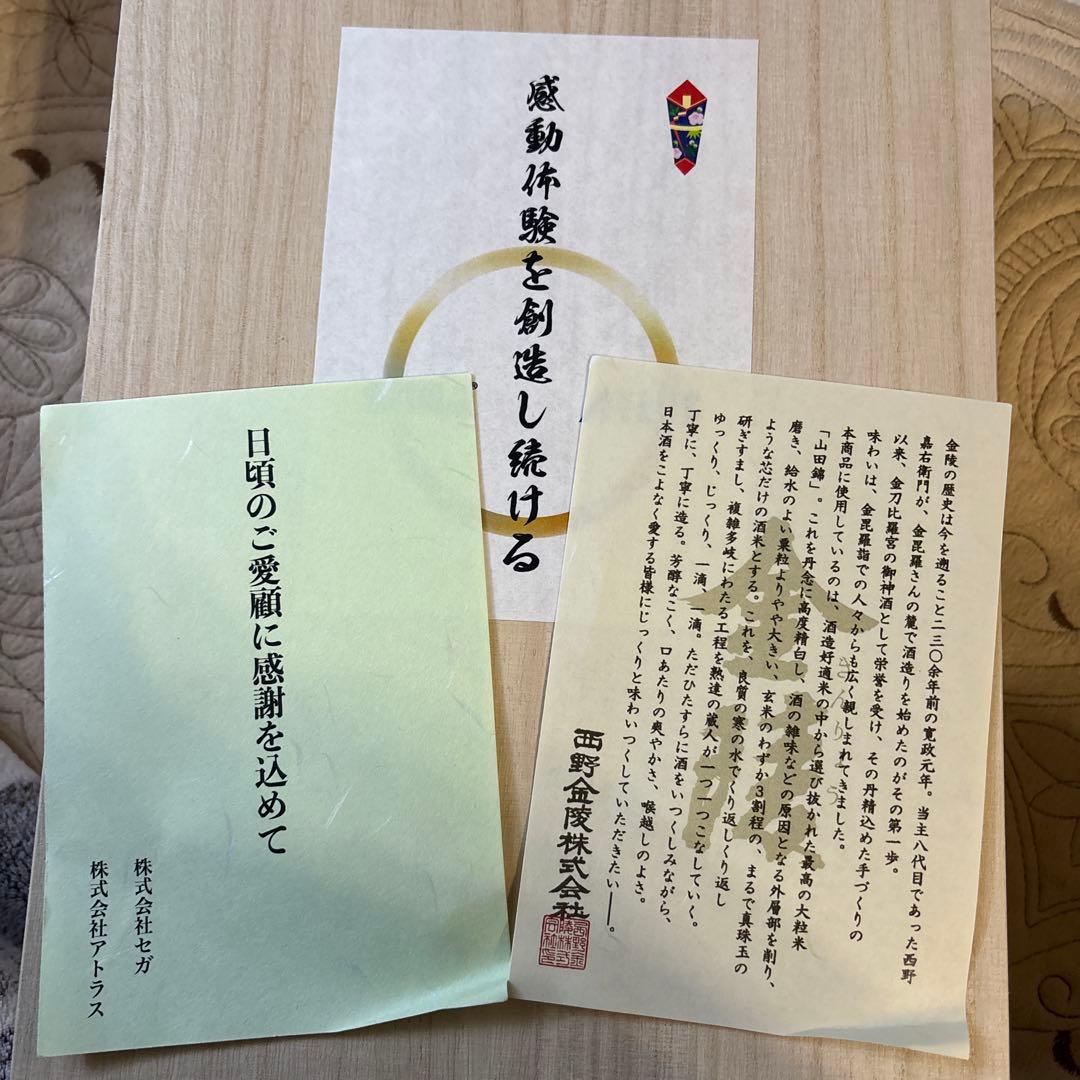 感動体験を創造し続ける
®
日頃のご愛顧に感謝を込めて
株式会社セガ
株式会社アトラス
金陵の歴史は今を遡ること二三〇余年前の寛政元年。当主八代目であった西野
嘉右衛門が、金毘羅さんの麓で酒造りを始めたのがその第一歩。
以来、金刀比羅宮の御神酒として栄誉を受け、その丹精込めた手づくりの
味わいは、金毘羅詣での人々からも広く親しまれてきました。
本商品に使用しているのは、酒造好適米の中から選び抜かれた最高の大粒米
「山田錦」。これを丹念に高度精白し、酒の雑味などの原因となる外層部を削り、
磨き、給水のよい粟粒よりやや大きい、玄米のわずか3割程の、まるで真珠玉の
ような芯だけの酒米とする。これを、良質の寒の水でくり返しくり返し
研ぎすまし、複雑多岐にわたる工程を熟達の蔵人が一つ一つこなしていく。
ゆっくり、じっくり、一滴、一滴。ただひたすらに酒をいつくしみながら、
丁寧に、丁寧に造る。芳醇なこく、口あたりの爽やかさ、喉越しのよさ。
日本酒をこよなく愛する皆様にじっくりと味わいつくしていただきたい――。
金陵
きんりょう
西野金陵株式会社